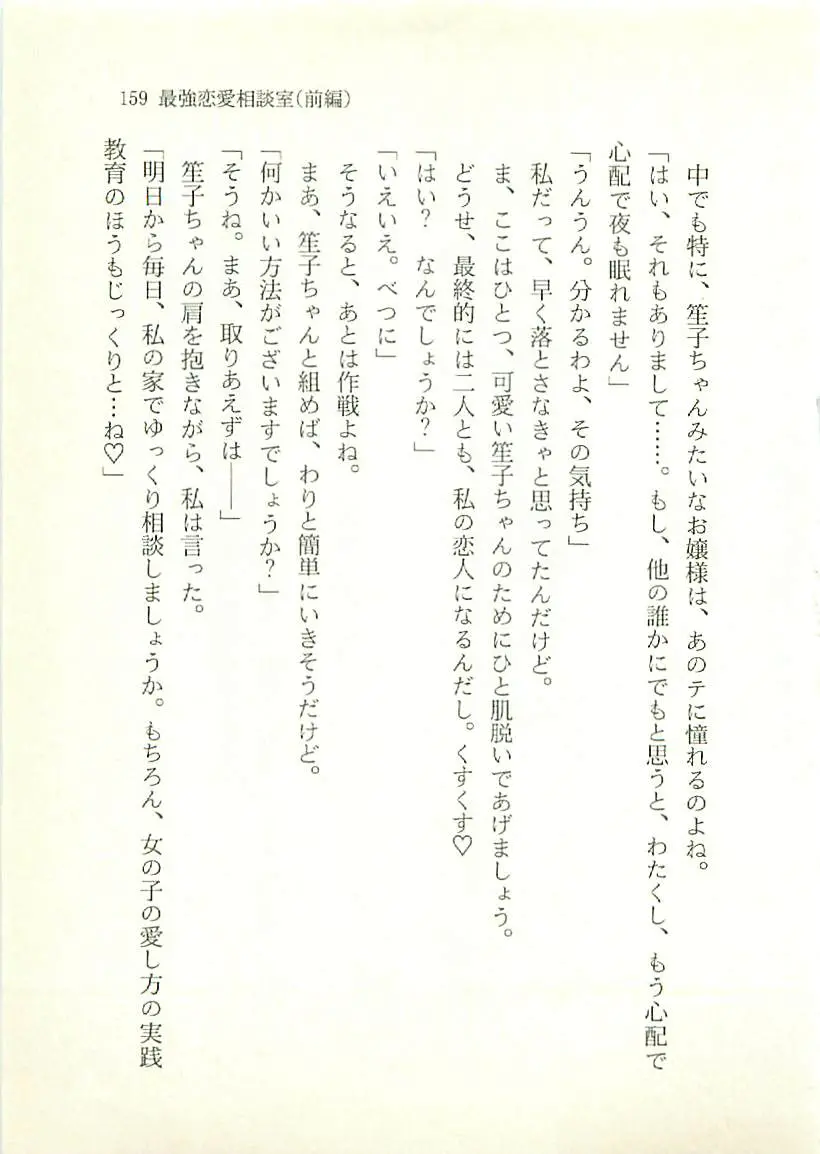 159 最強恋愛相談室(前編)
中でも特に、笙子ちゃんみたいなお嬢様は、あのテに憧れるのよね。
「はい、それもありまして……。もし、他の誰かにでもと思うと、わたくし、もう心配で
心配で夜も眠れません」
「うんうん。分かるわよ、その気持ち」
私だって、早く落とさなきゃと思ってたんだけど。
ま、ここはひとつ、可愛い笙子ちゃんのためにひと肌脱いであげましょう。
どうせ、最終的には二人とも、私の恋人になるんだし。くすくす♡
「はい？　なんでしょうか？」
「いえいえ。べつに」
そうなると、あとは作戦よね。
まあ、笙子ちゃんと組めば、わりと簡単にいきそうだけど。
「何かいい方法がございますでしょうか？」
「そうね。まあ、取りあえずは――」
笙子ちゃんの肩を抱きながら、私は言った。
「明日から毎日、私の家でゆっくり相談しましょうか。もちろん、女の子の愛し方の実践
教育のほうもじっくりと…ね♡」